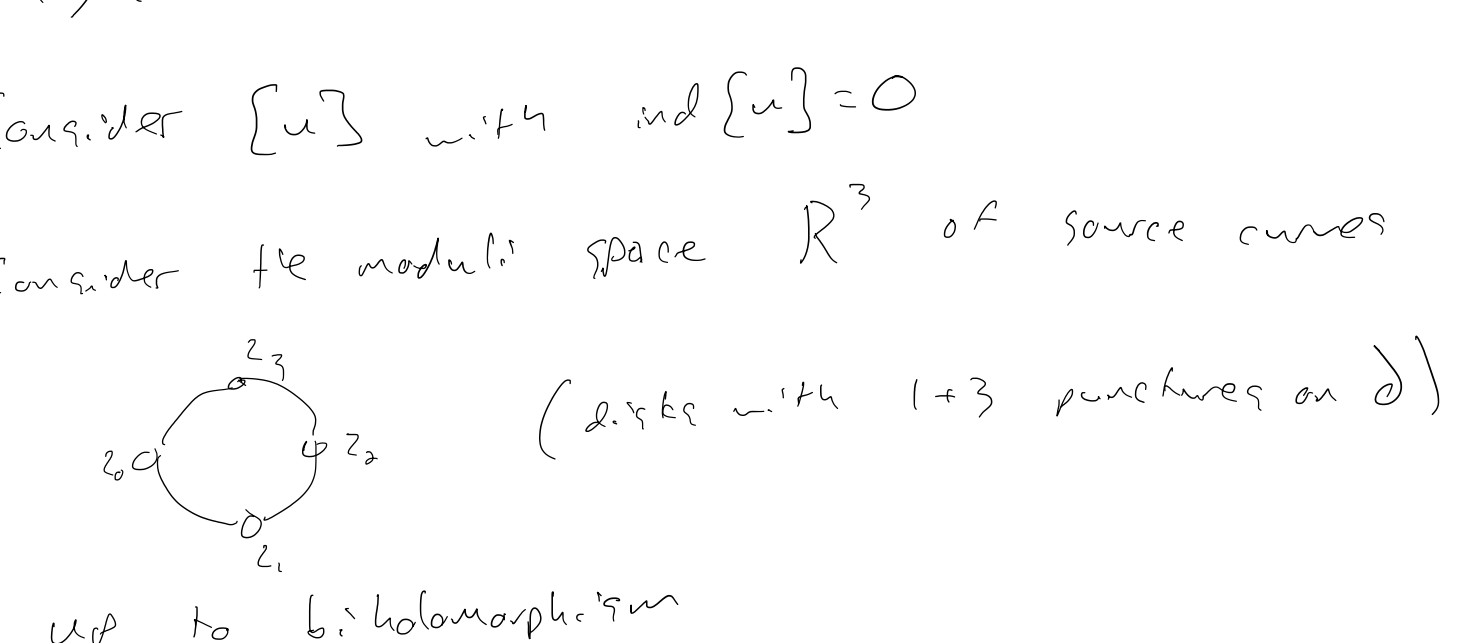 Consider [u] with ind [u] = 0
Consider the moduli space R³ of source curves
z₃
(disks with 1+3 punctures on ∂)
z₀ z₂
z₁
up to biholomorphism